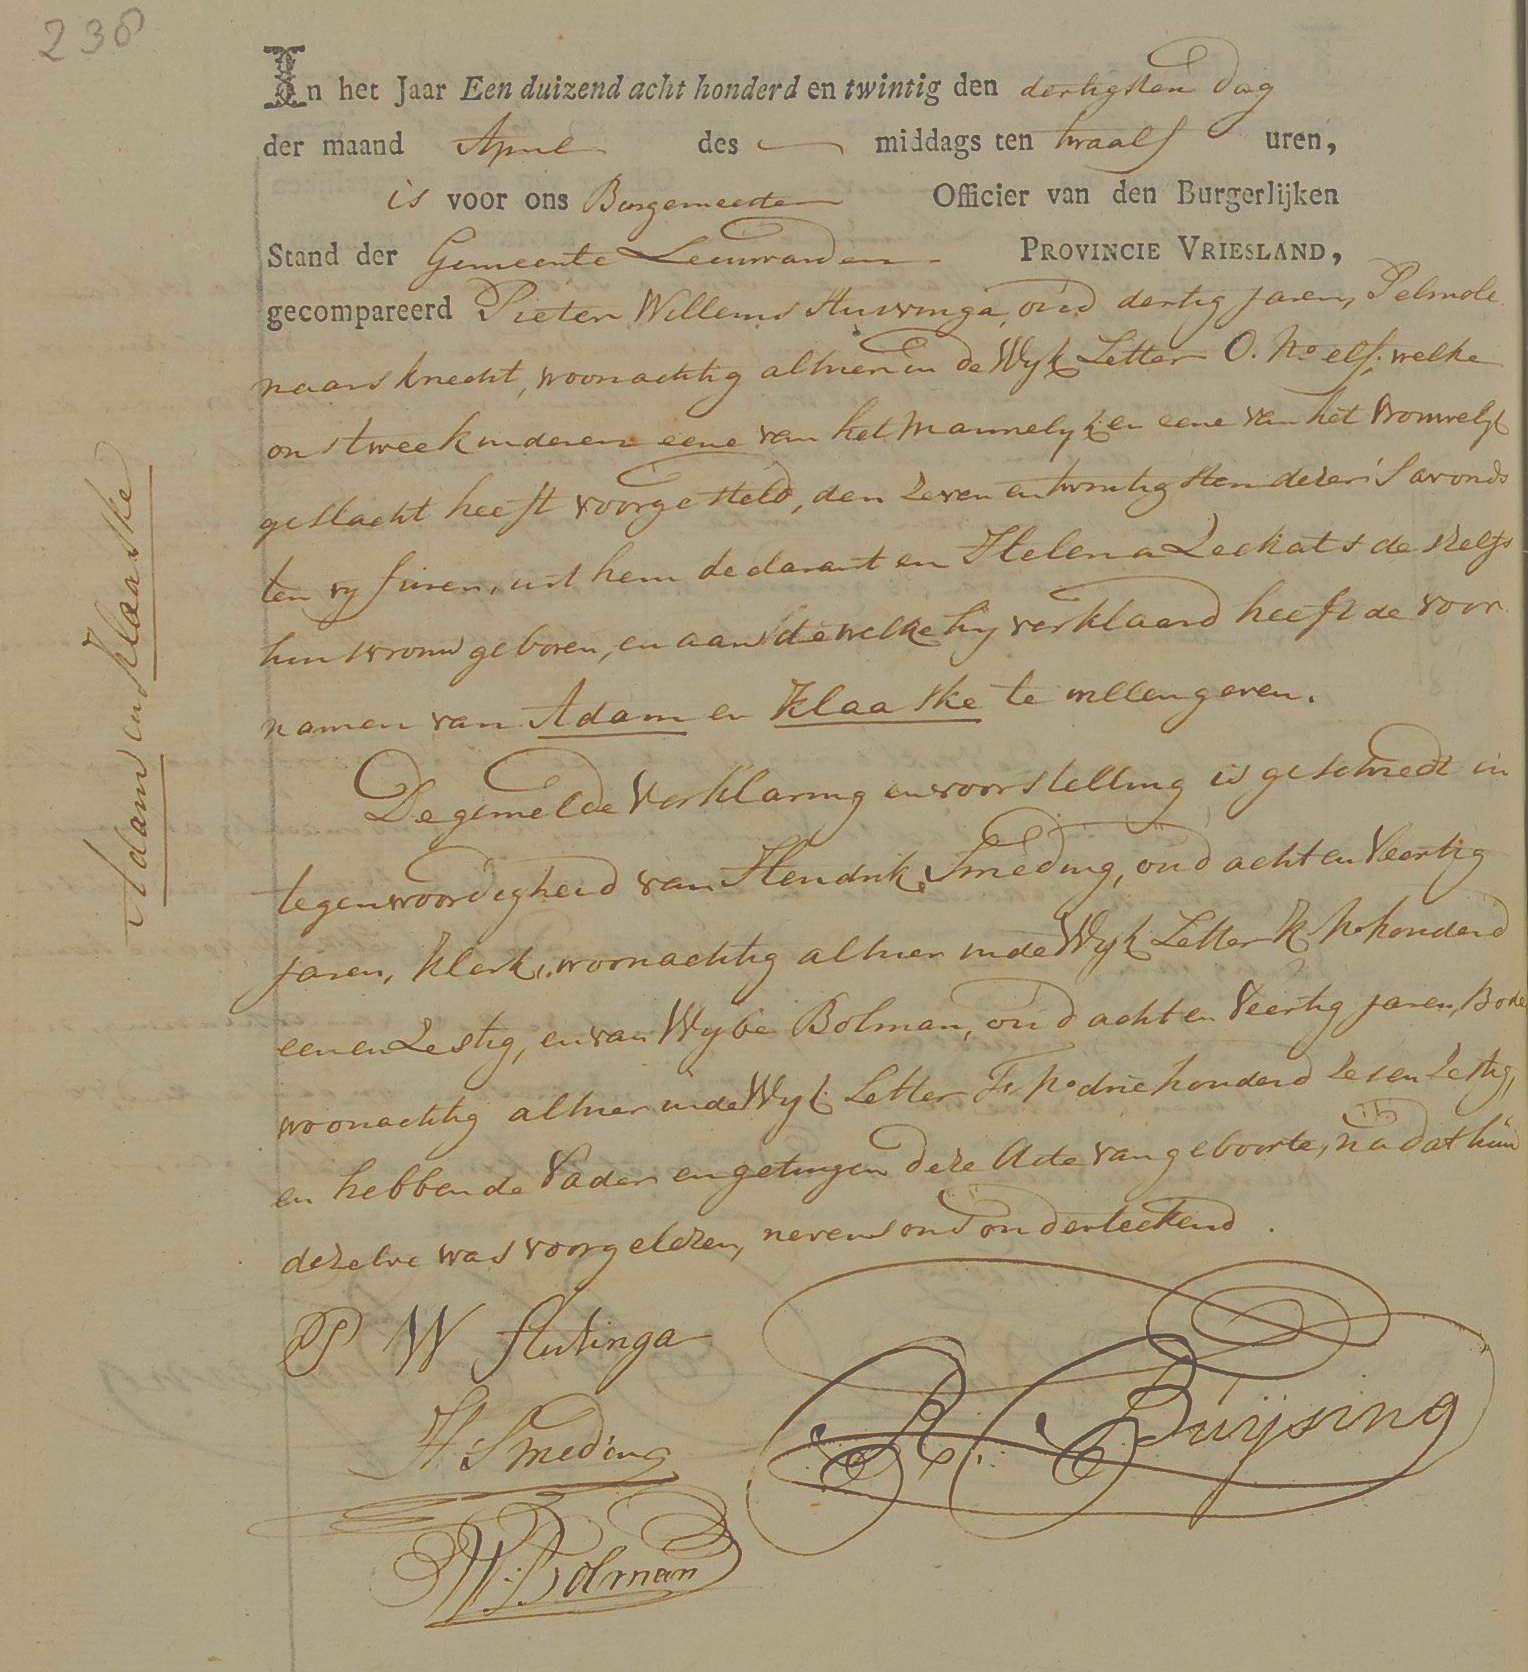 238
In het Jaar Een duizend acht honderd en twintig den dertigsten dag
der maand April des middags ten twaalf uren,
is voor ons Burgemeester Officier van den Burgerlijken
Stand der Gemeente Leeuwarden PROVINCIE VRIESLAND,
gecompareerd Pieter Willems oud dertig jaren, Pelmole
naars knecht, woonachtig alhier in de Wyk Letter O. No elf, welke
ons twee kinderen eene van het Mannelyk en eene van het Vrouwelyk
geslacht heeft voorgesteld, den zeven en twintigsten dezer 's avonds
ten vyf uren, uit hem declarant en Helena des zelfs
huisvrouw geboren, en aan de welke hy verklaard heeft de voor
namen van Adam en Klaaske te willen geven.
De gemelde Verklaring en voorstelling is geschiedt in
tegenwoordigheid van Hendrik Smeding, oud acht en Veertig
jaren, Klerk, woonachtig alhier in de Wyk Letter K No honderd
een en Zestig, en van Wybe Bolman, oud acht en Veertig jaren, Bode
woonachtig alhier in de Wyk Letter F, No drie honderd zes en Zestig,
en hebben de Vader en getuigen deze Acte van geboorte, na dat hun
dezelve was voorgelezen, nevens ons onderteekend.
P W
H. Smeding
R. Buijsing
W. Bolman
Adam en Klaaske